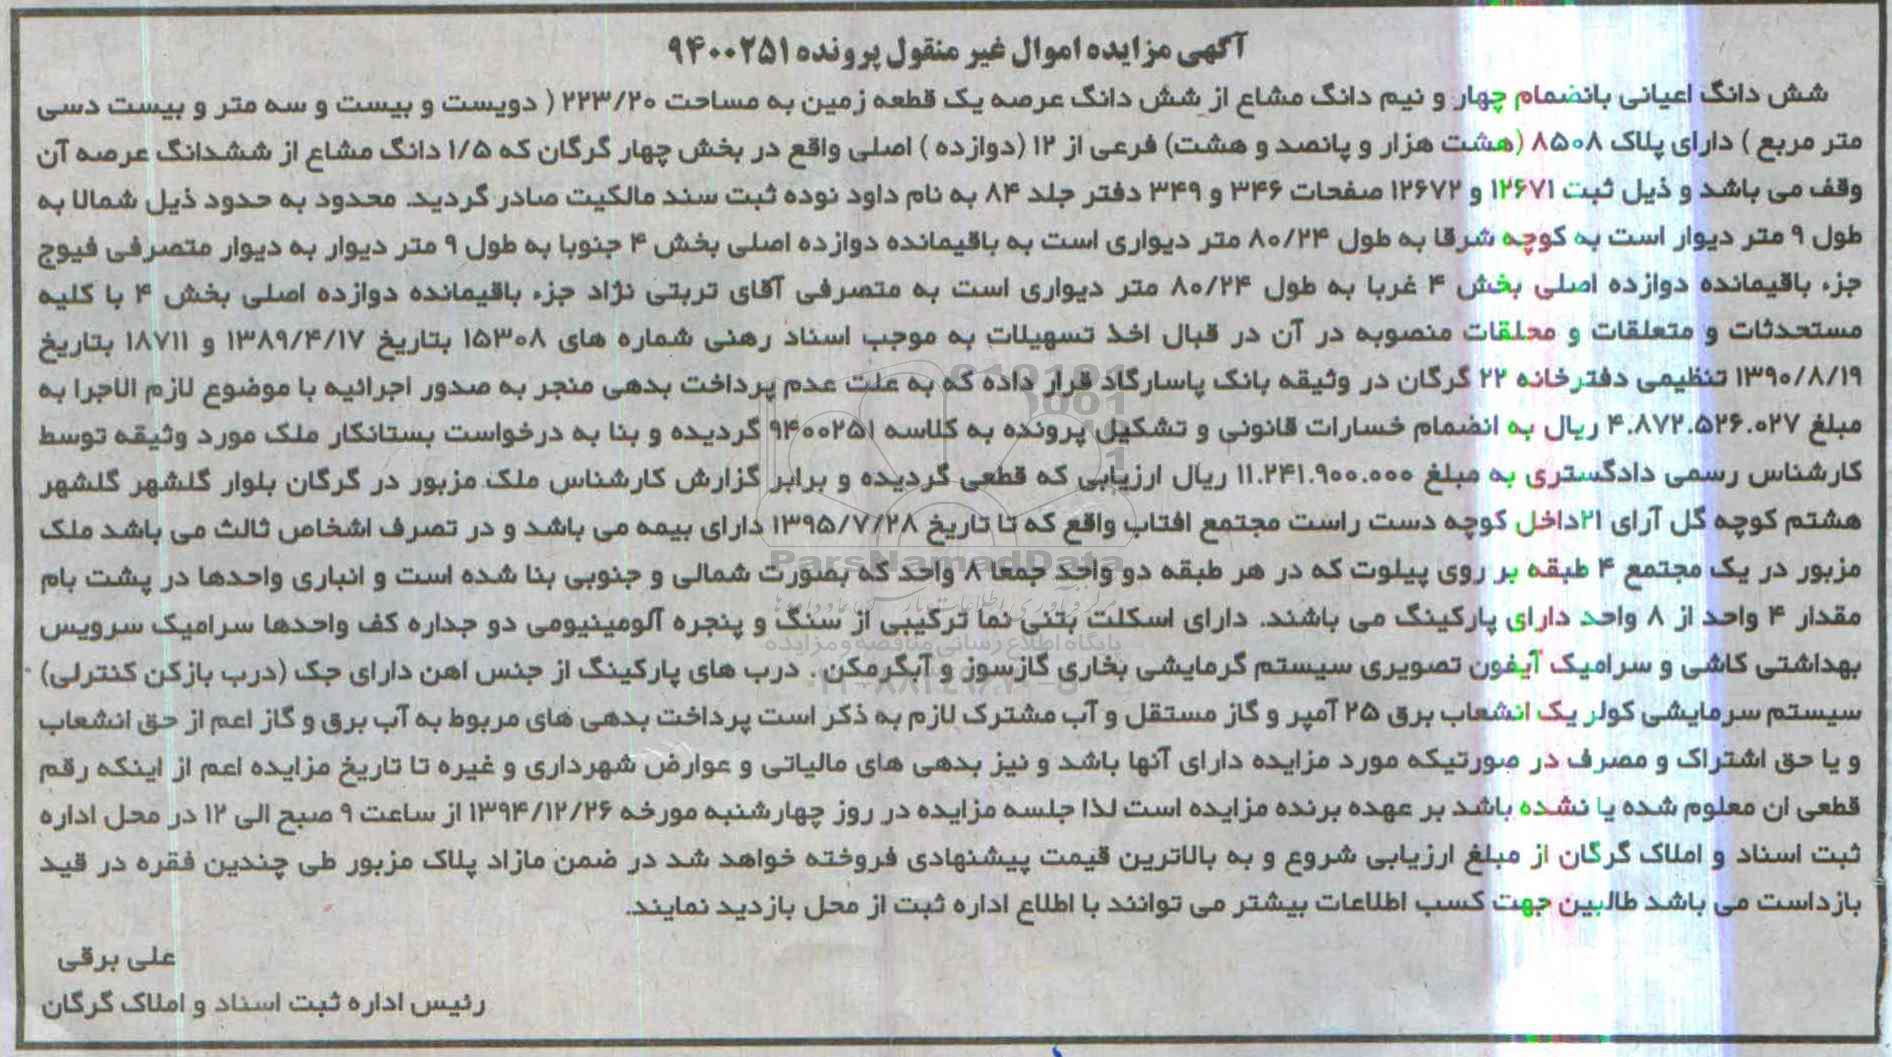 آگهی مزایده اموال غیر منقول پرونده ۹۴۰۰۲۵۱
شش دانگ اعیانی بانضمام چهار و نیم دانگ مشاع از شش دانگ عرصه یک قطعه زمین به مساحت ۲۲۳/۲۰ ( دویست و بیست و سه متر و بیست دسی
متر مربع ) دارای پلاک ۸۵۰۸ (هشت هزار و پانصد و هشت) فرعی از ۱۲ (دوازده ) اصلی واقع در بخش چهار گرگان که ۱/۵ دانگ مشاع از ششدانگ عرصه آن
وقف می باشد و ذیل ثبت ۱۲۶۷۱ و ۱۲۶۷۲ صفحات ۳۴۶ و ۳۴۹ دفتر جلد ۸۴ به نام داود نوده ثبت سند مالکیت صادر گردید. محدود به حدود ذیل شمالا به
طول ۹ متر دیوار است به کوچه شرقا به طول ۸۰/۲۴ متر دیواری است به باقیمانده دوازده اصلی بخش ۴ جنوبا به طول ۹ متر دیوار به دیوار متصرفی فیوج
جزء باقیمانده دوازده اصلی بخش ۴ غربا به طول ۸۰/۲۴ متر دیواری است به متصرفی آقای تربتی نژاد جزء باقیمانده دوازده اصلی بخش ۴ با کلیه
مستحدثات و متعلقات و محلقات منصوبه در آن در قبال اخذ تسهیلات به موجب اسناد رهنی شماره های ۱۵۳۰۸ بتاریخ ۱۳۸۹/۴/۱۷ و ۱۸۷۱۱ بتاریخ
۱۳۹۰/۸/۱۹ تنظیمی دفترخانه ۲۲ گرگان در وثیقه بانک پاسارگاد قرار داده که به علت عدم پرداخت بدهی منجر به صدور اجرائیه با موضوع لازم الاجرا به
مبلغ ۴.۸۷۲.۵۲۶.۰۲۷ ریال به انضمام خسارات قانونی و تشکیل پرونده به کلاسه ۹۴۰۰۲۵۱ گردیده و بنا به درخواست بستانکار ملک مورد وثیقه توسط
کارشناس رسمی دادگستری به مبلغ ۱۱.۲۴۱.۹۰۰.۰۰۰ ریال ارزیابی که قطعی گردیده و برابر گزارش کارشناس ملک مزبور در گرگان بلوار گلشهر گلشهر
هشتم کوچه گل آرای ۲۱داخل کوچه دست راست مجتمع افتاب واقع که تا تاریخ ۱۳۹۵/۷/۲۸ دارای بیمه می باشد و در تصرف اشخاص ثالث می باشد ملک
مزبور در یک مجتمع ۴ طبقه بر روی پیلوت که در هر طبقه دو واحد جمعا ۸ واحد که بصورت شمالی و جنوبی بنا شده است و انباری واحدها در پشت بام
مقدار ۴ واحد از ۸ واحد دارای پارکینگ می باشند. دارای اسکلت بتنی نما ترکیبی از سنگ و پنجره آلومینیومی دو جداره کف واحدها سرامیک سرویس
بهداشتی کاشی و سرامیک آیفون تصویری سیستم گرمایشی بخاری گازسوز و آبگرمکن . درب های پارکینگ از جنس اهن دارای جک (درب بازکن کنترلی)
سیستم سرمایشی کولر یک انشعاب برق ۲۵ آمپر و گاز مستقل و آب مشترک لازم به ذکر است پرداخت بدهی های مربوط به آب برق و گاز اعم از حق انشعاب
و یا حق اشتراک و مصرف در صورتیکه مورد مزایده دارای آنها باشد و نیز بدهی های مالیاتی و عوارض شهرداری و غیره تا تاریخ مزایده اعم از اینکه رقم
قطعی ان معلوم شده یا نشده باشد بر عهده برنده مزایده است لذا جلسه مزایده در روز چهارشنبه مورخه ۱۳۹۴/۱۲/۲۶ از ساعت ۹ صبح الی ۱۲ در محل اداره
ثبت اسناد و املاک گرگان از مبلغ ارزیابی شروع و به بالاترین قیمت پیشنهادی فروخته خواهد شد در ضمن مازاد پلاک مزبور طی چندین فقره در قید
بازداست می باشد طالبین جهت کسب اطلاعات بیشتر می توانند با اطلاع اداره ثبت از محل بازدید نمایند.
علی برقی
رئیس اداره ثبت اسناد و املاک گرگان
ParsNamadData
پایگاه اطلاع رسانی مناقصه و مزایده